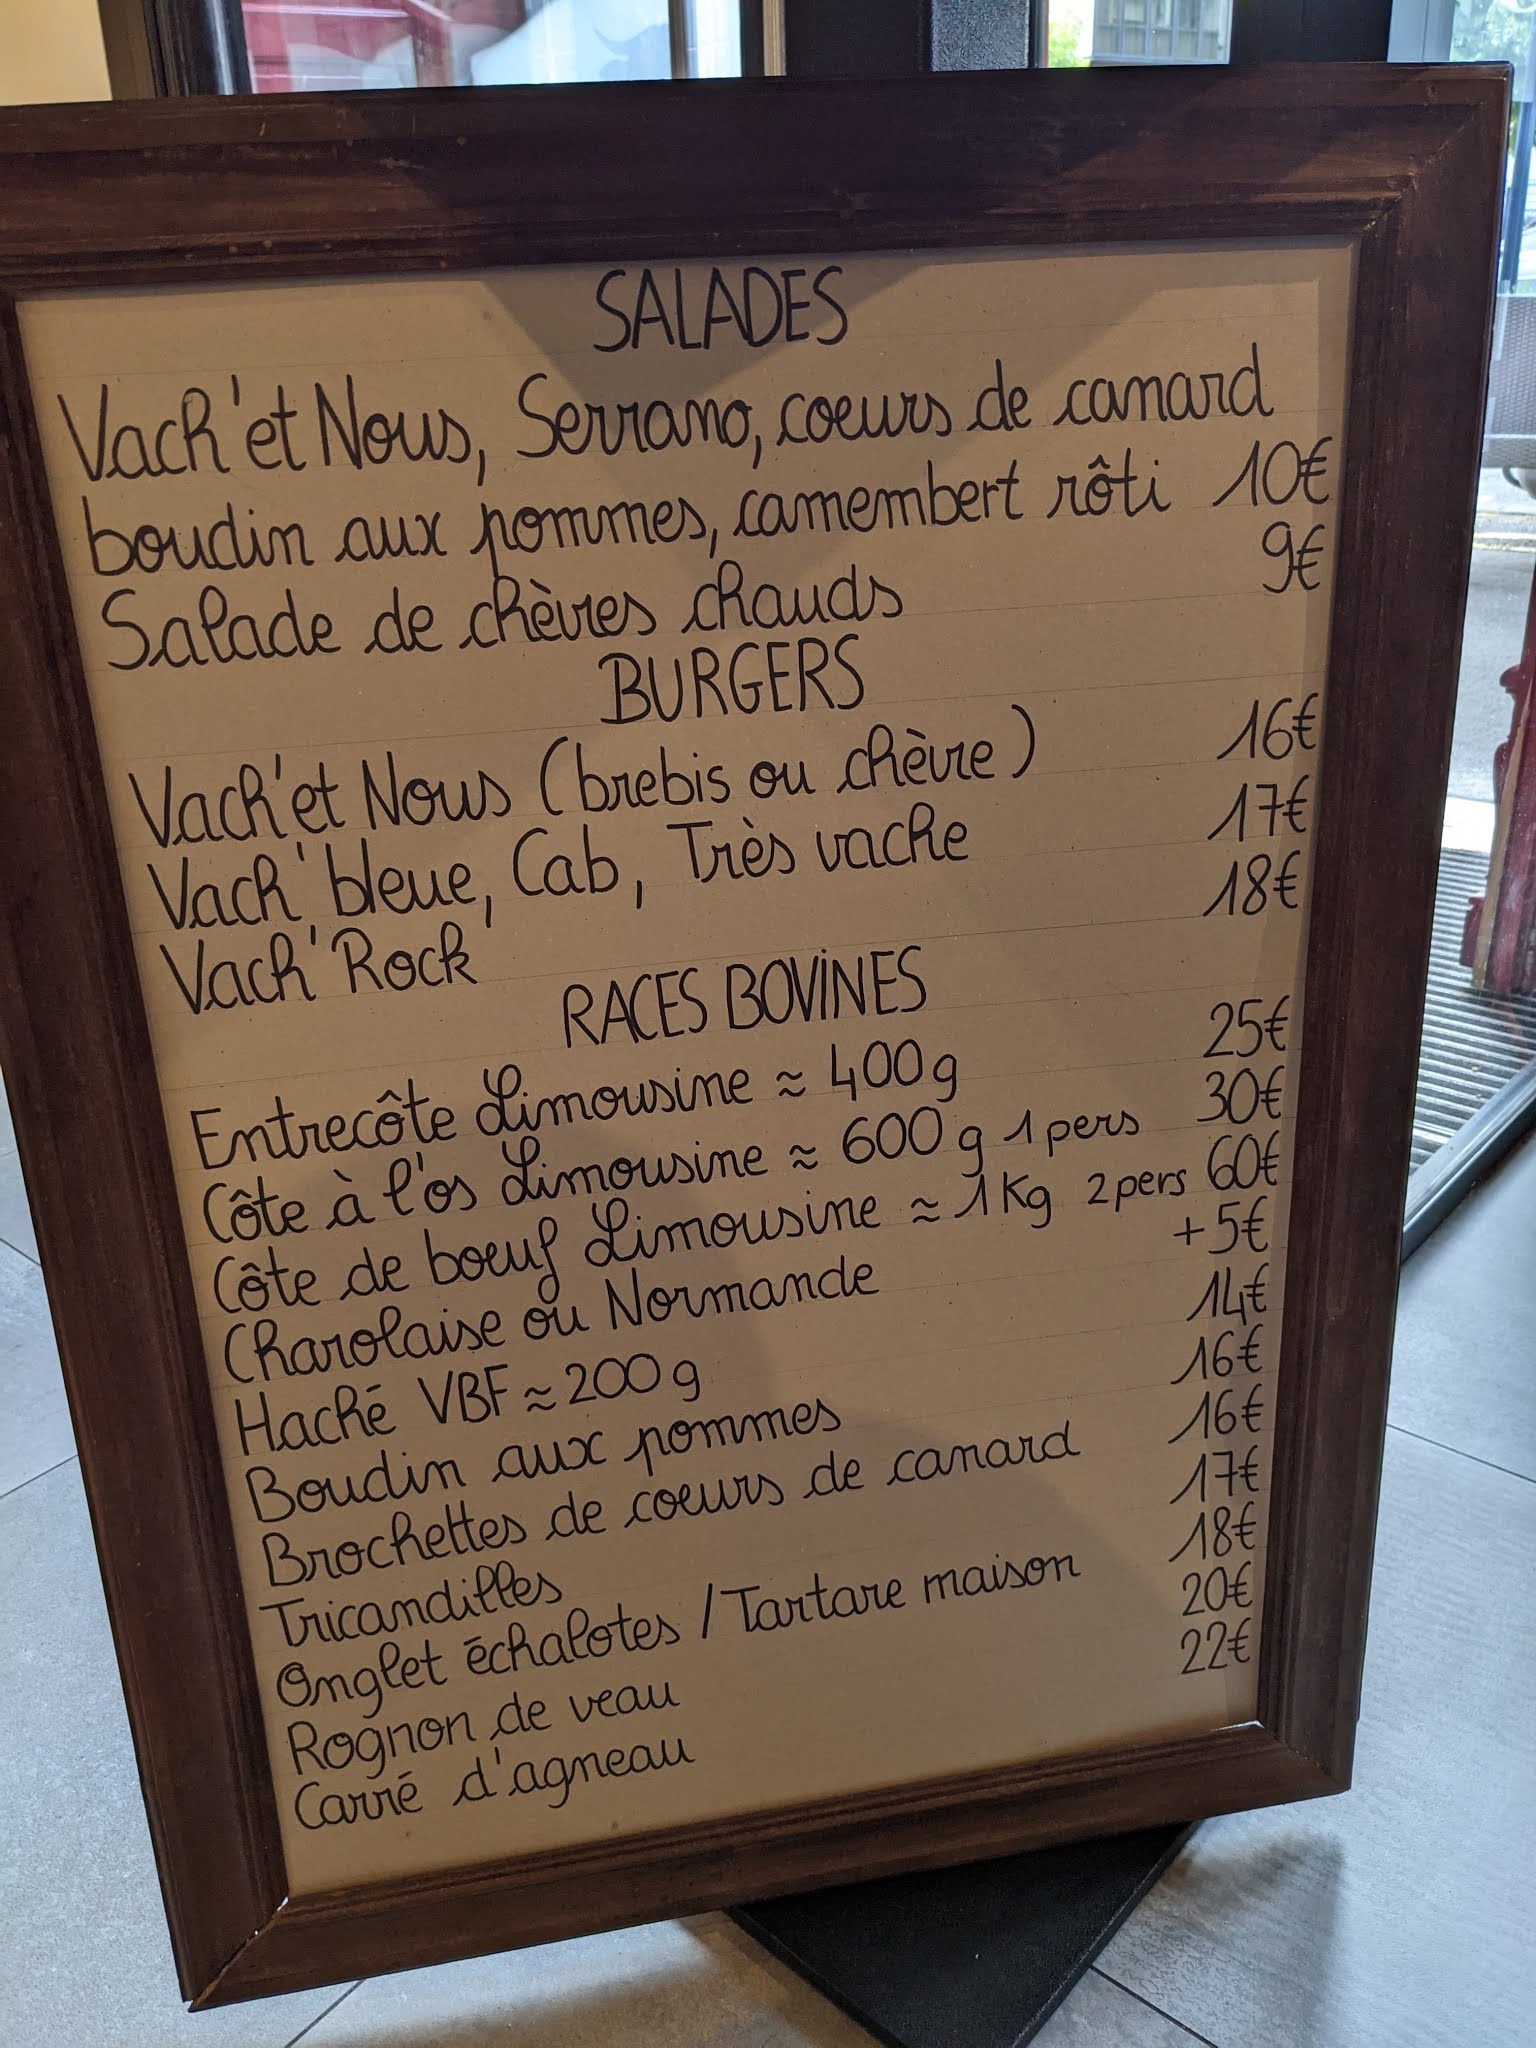 SALADES
Vach'et Nous, Serrano, coeurs de canard
boudin aux pommes, camembert rôti 10€
Salade de chèvres chauds 9€
BURGERS
Vach'et Nous (brebis ou chèvre) 16€
Vach'bleue, Cab, Très vache 17€
Vach'Rock 18€
RACES BOVINES
Entrecôte Limousine ≈ 400g 25€
Côte à l'os Limousine ≈ 600g 1pers 30€
Côte de boeuf Limousine ≈ 1Kg 2pers 60€
Charolaise ou Normande +5€
Haché VBF ≈ 200g 14€
Boudin aux pommes 16€
Brochettes de coeurs de canard 16€
Tricandilles 17€
Onglet échalotes / Tartare maison 18€
Rognon de veau 20€
Carré d'agneau 22€